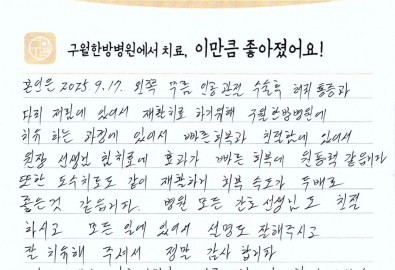 구월한방병원에서 치료, 이만큼 좋아졌어요!
본인은 2025. 9. 17. 왼쪽 무릎 인공관절 수술후 허리 통증과
다리 재활에 있어서 재활치료 하기위해 구월한방병원에
치유 하는 과정에 있어서 빠른회복과 친절함에 있어서
원장 선생님 침치료에 효과가 빠른 회복에 원동력 같읍니다
또한 도수치료도 같이 재활하기 회복 속도가 두배로
좋은것 같읍니다. 병원 모든 간호선생님도 친절
하시고 모든 일에 있어서 설명도 잘해주시고
잘 치유해 주셔서 정말 감사 합니다